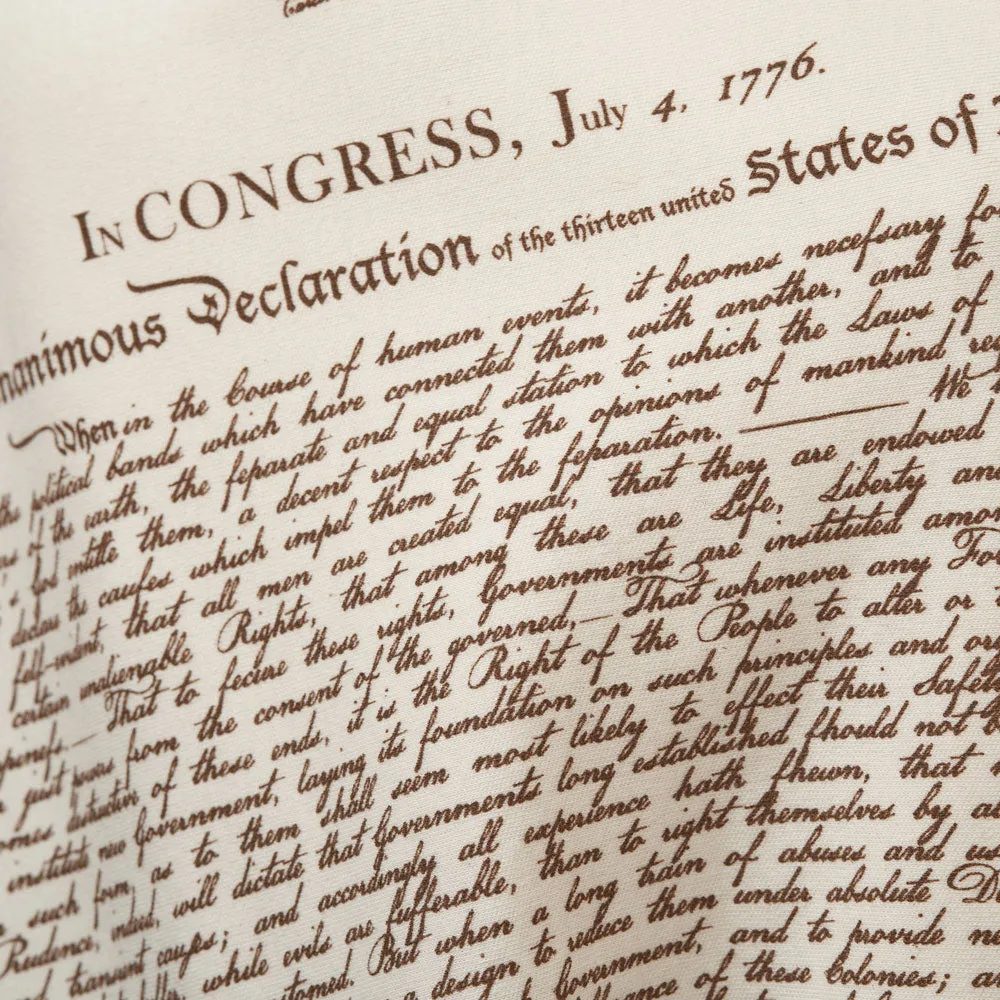 In CONGRESS, July 4, 1776.
nanimous Declaration of the thirteen united States of
When in the Course of human events, it becomes necefsary for
the political bands which have connected them with another, and to
of the earth, the feparate and equal station to which the Laws of
s God entitle them, a decent respect to the opinions of mankind req
declare the caufes which impel them to the feparation. ——— We
felf-evident, that all men are created equal, that they are endowed
certain unalienable Rights, that among these are Life, Liberty and
appinefs.—That to fecure these rights, Governments are instituted amon
just powers from the consent of the governed,—That whenever any Fo
omes destructive of these ends, it is the Right of the People to alter or
institute new Government, laying its foundation on such principles and or
such form, as to them shall seem most likely to effect their Safet
Prudence, indeed, will dictate that Governments long established fhould not b
transient caufes; and accordingly all experience hath fhewn, that
while evils are fufferable, than to right themselves by a
ustomed. But when a long train of abuses and us
a design to reduce them under absolute D
h Government, and to provide n
erance of these Colonies; a